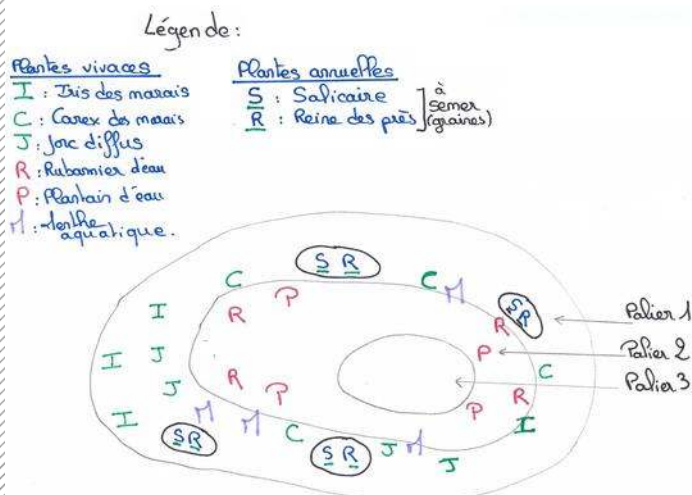 Légende:
Plantes vivaces
I : Iris des marais
C : Carex des marais
J : Jonc diffus
R : Rubannier d'eau
P : Plantain d'eau
M : Menthe
aquatique.
Plantes annuelles
S : Salicaire
R : Reine des près
à
semer
(graines)
S R
C
C
M
S R
I
R
P
R
Palier 1
I
J
P
Palier 2
C
J
R
P
R
Palier 3
I
M
M
P
I
S R
C
S R
J
M
J